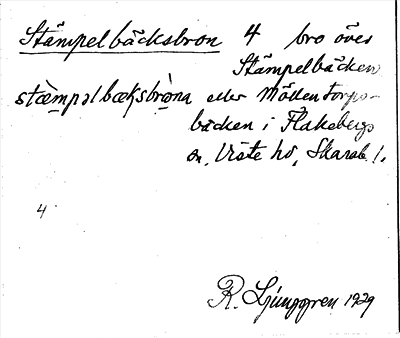 Stämpelbäcksbron 4 bro över
Stämpelbäcken
stæ̀mpəlbæksbrò̤na eller Möllentorps-
bäcken i Flakebergs
sn, Viste hd, Skarab. l.
4
R. Ljunggren 1929